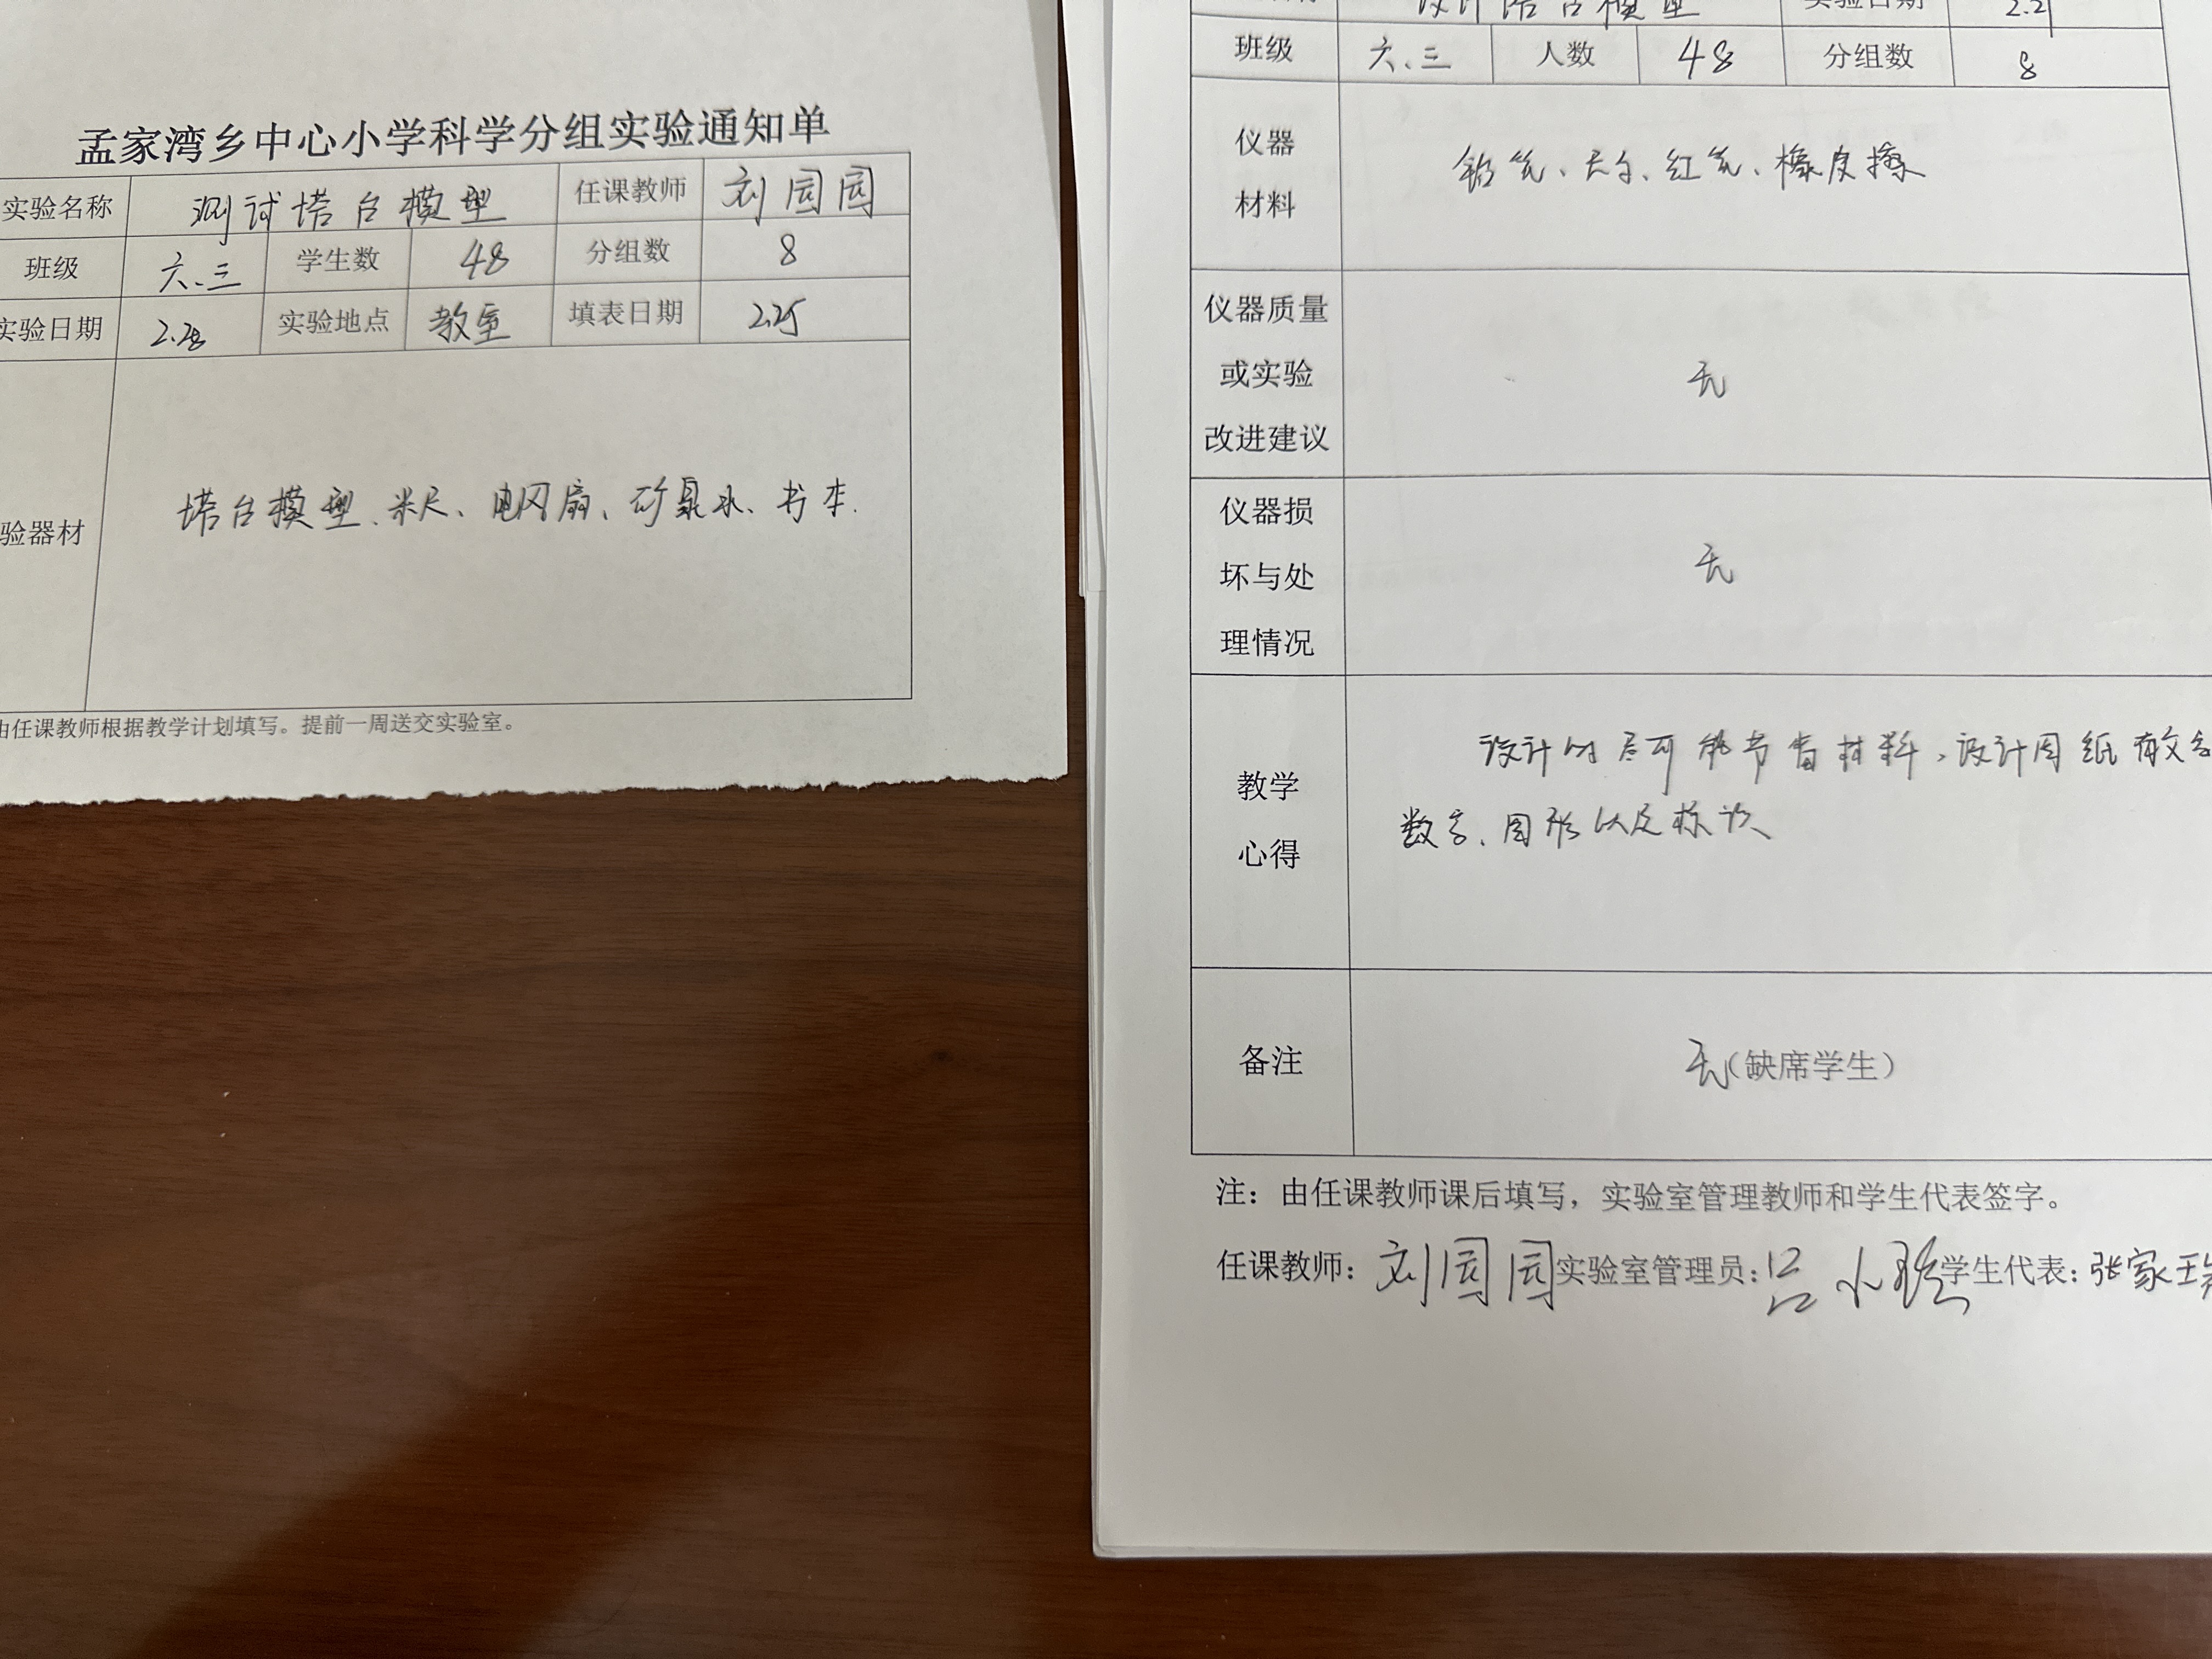 孟家湾乡中心小学科学分组实验通知单
实验名称 测试塔台模型 任课教师 刘园园
班级 六.三 学生数 48 分组数 8
实验日期 2.28 实验地点 教室 填表日期 2.25
验器材 塔台模型、米尺、电风扇、矿泉水、书本.
由任课教师根据教学计划填写。提前一周送交实验室。
设计塔台模型 实验日期 2.21
班级 六.三 人数 48 分组数 8
仪器
材料
铅笔、尺子、红笔、橡皮擦
仪器质量
或实验
改进建议
无
仪器损
坏与处
理情况
无
教学
心得
设计时尽可能节省材料,设计图纸有文字
数字、图形以及标识
备注 无(缺席学生)
注：由任课教师课后填写，实验室管理教师和学生代表签字。
任课教师：刘园园 实验室管理员：吕小 学生代表：张家